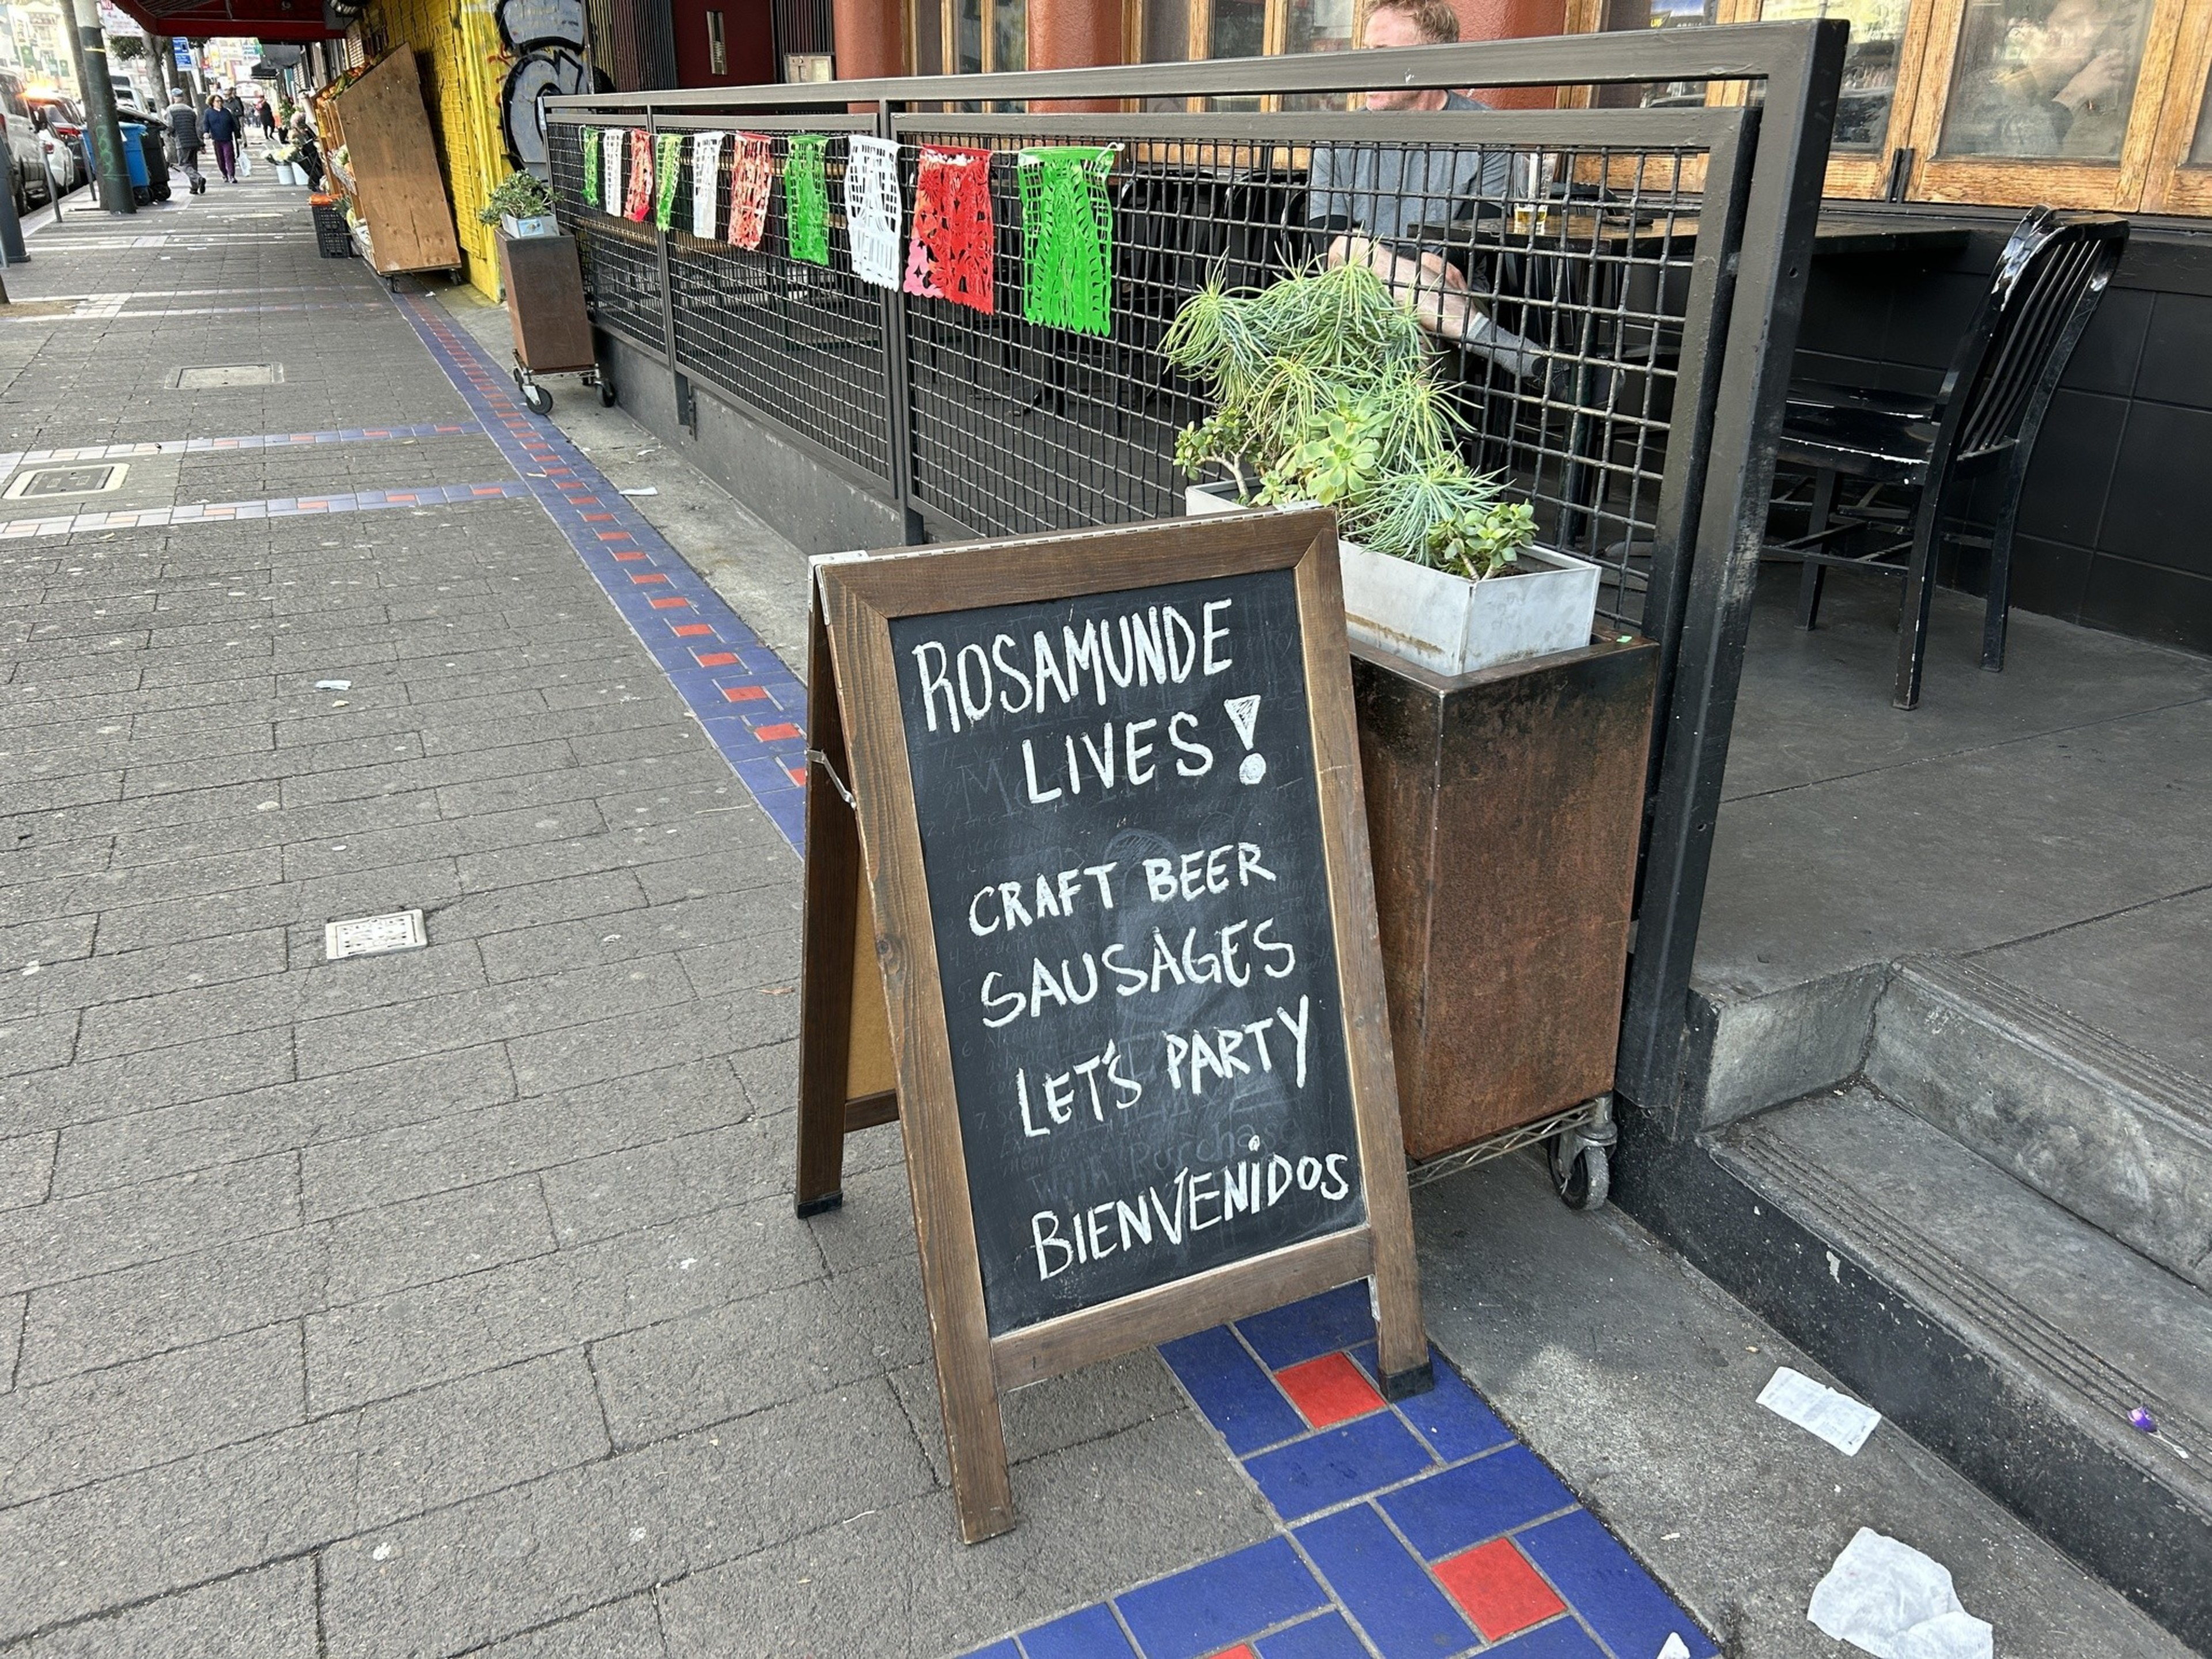 ROSAMUNDE
LIVES!
CRAFT BEER
SAUSAGES
LET'S PARTY
BIENVENIDOS